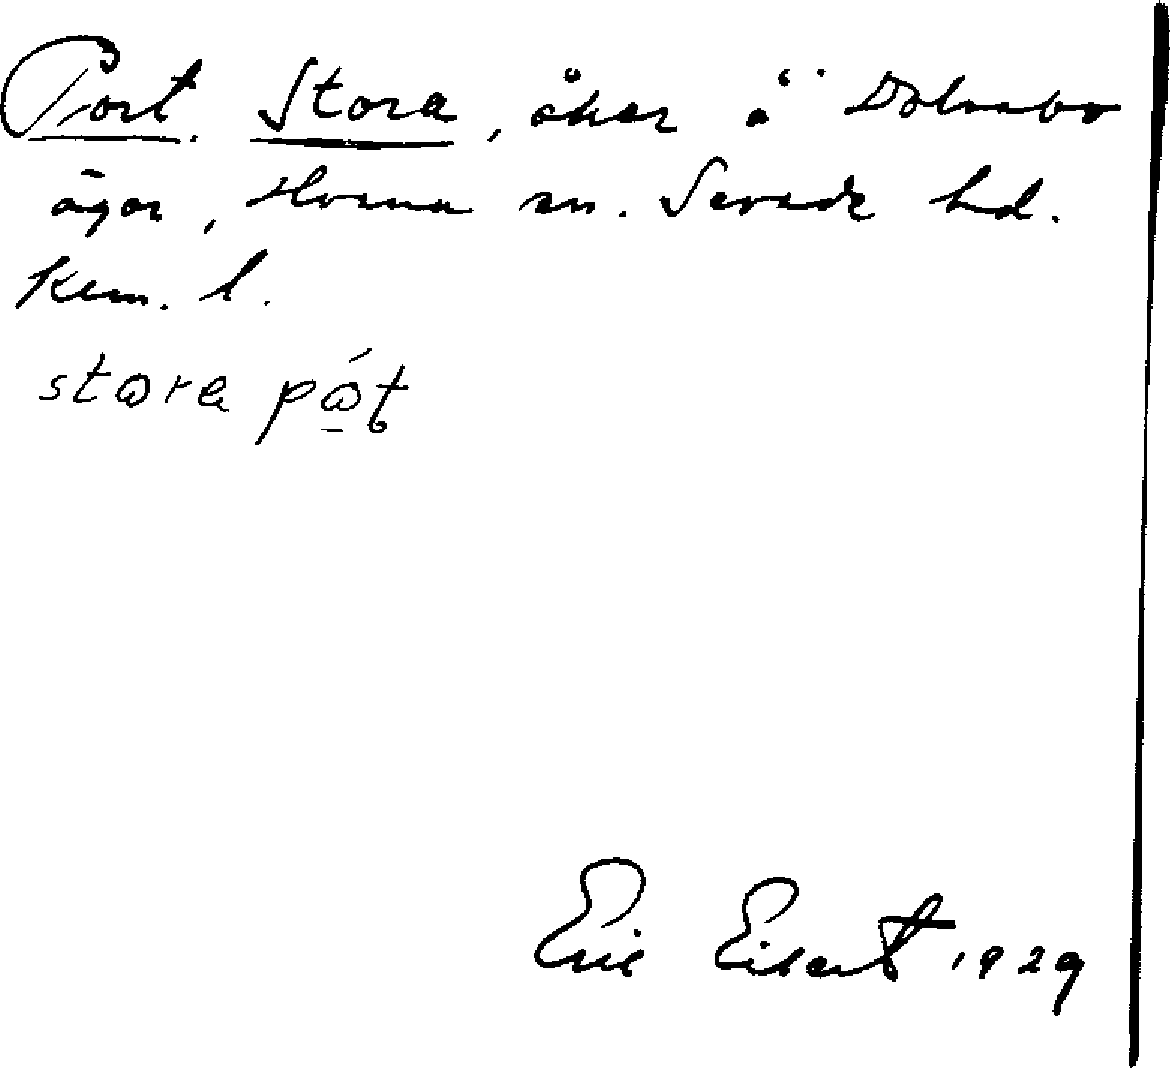 Port. Stora, åker å Dalsebo
ägor, Horna sn. Sevede hd.
Kem. l.
stora påt
Eric Eibert 1929